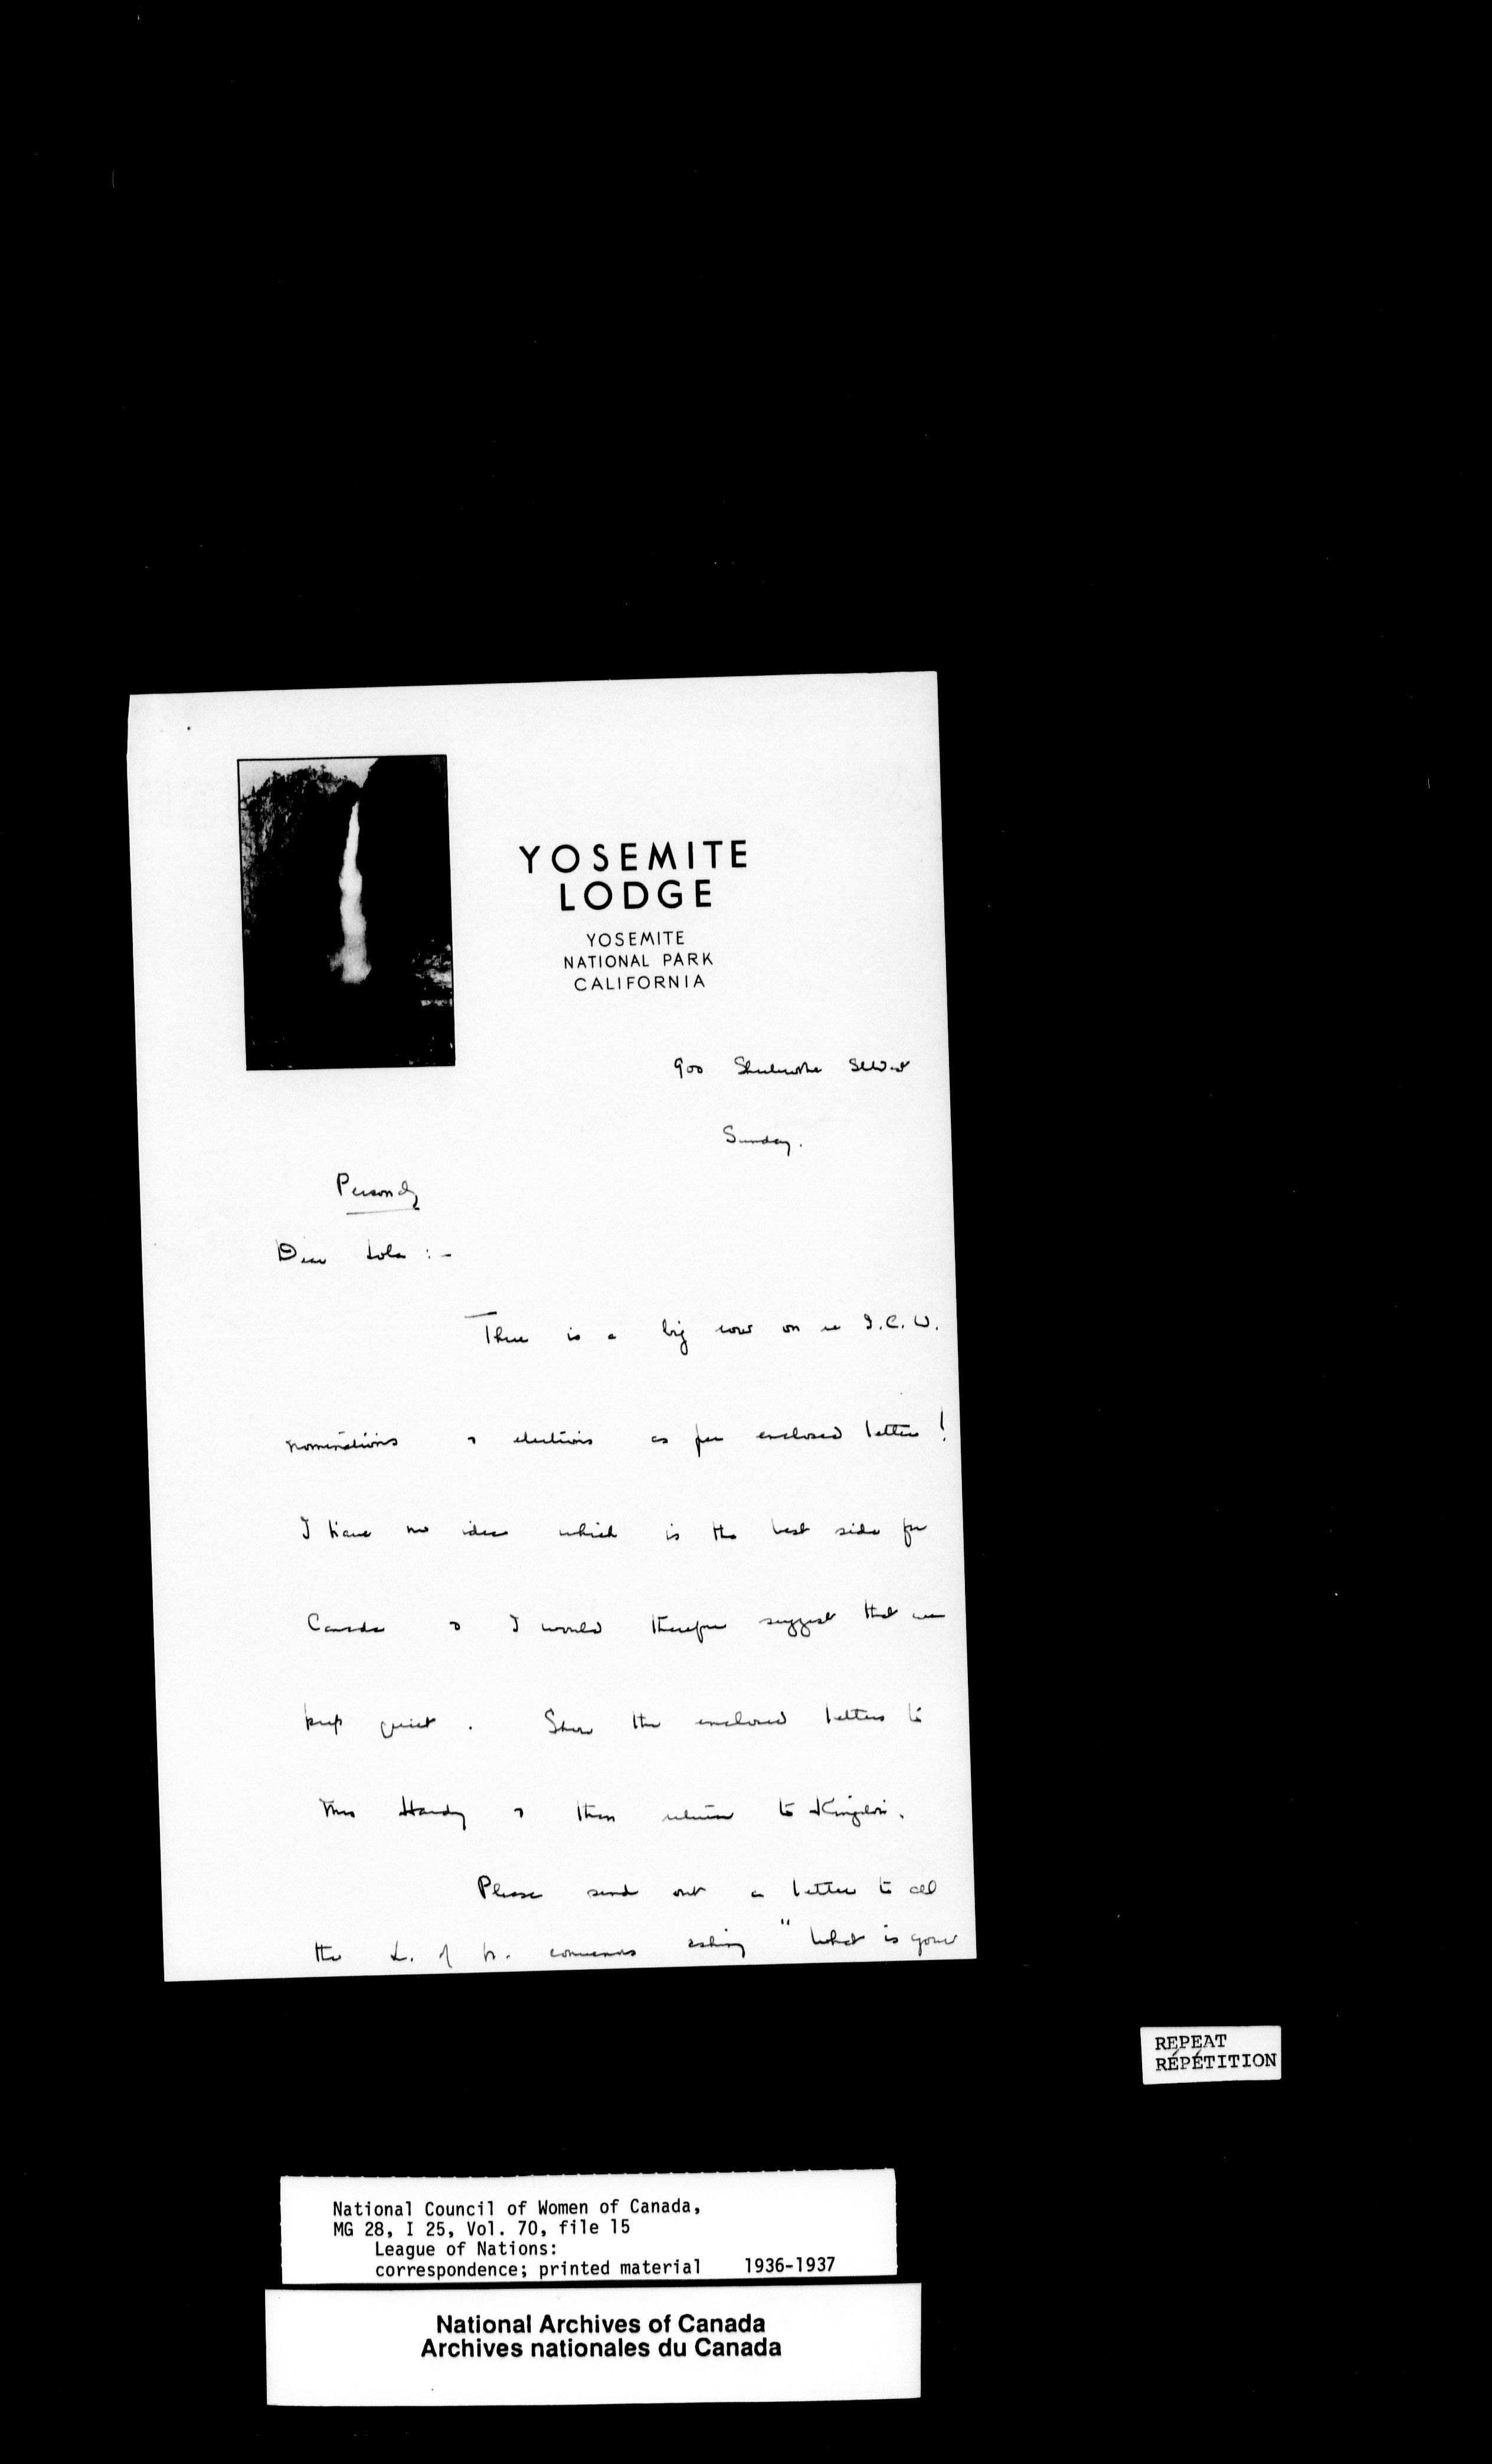 YOSEMITE
LODGE
YOSEMITE
NATIONAL PARK
CALIFORNIA
900 Sherbrooke St West
Sunday.
Personal
Dear Lola :-
There is a big row on re I.C.W.
nominations & elections as per enclosed letters!
I have no idea which is the best side for
Canada & I would therefore suggest that we
keep quiet. Show the enclosed letters to
Mrs Hardy & then return to Kingston.
Please send out a letter to all
the L. of N. conveners asking "What is your
REPEAT
RÉPÉTITION
National Council of Women of Canada,
MG 28, I 25, Vol. 70, file 15
League of Nations:
correspondence; printed material 1936-1937
National Archives of Canada
Archives nationales du Canada